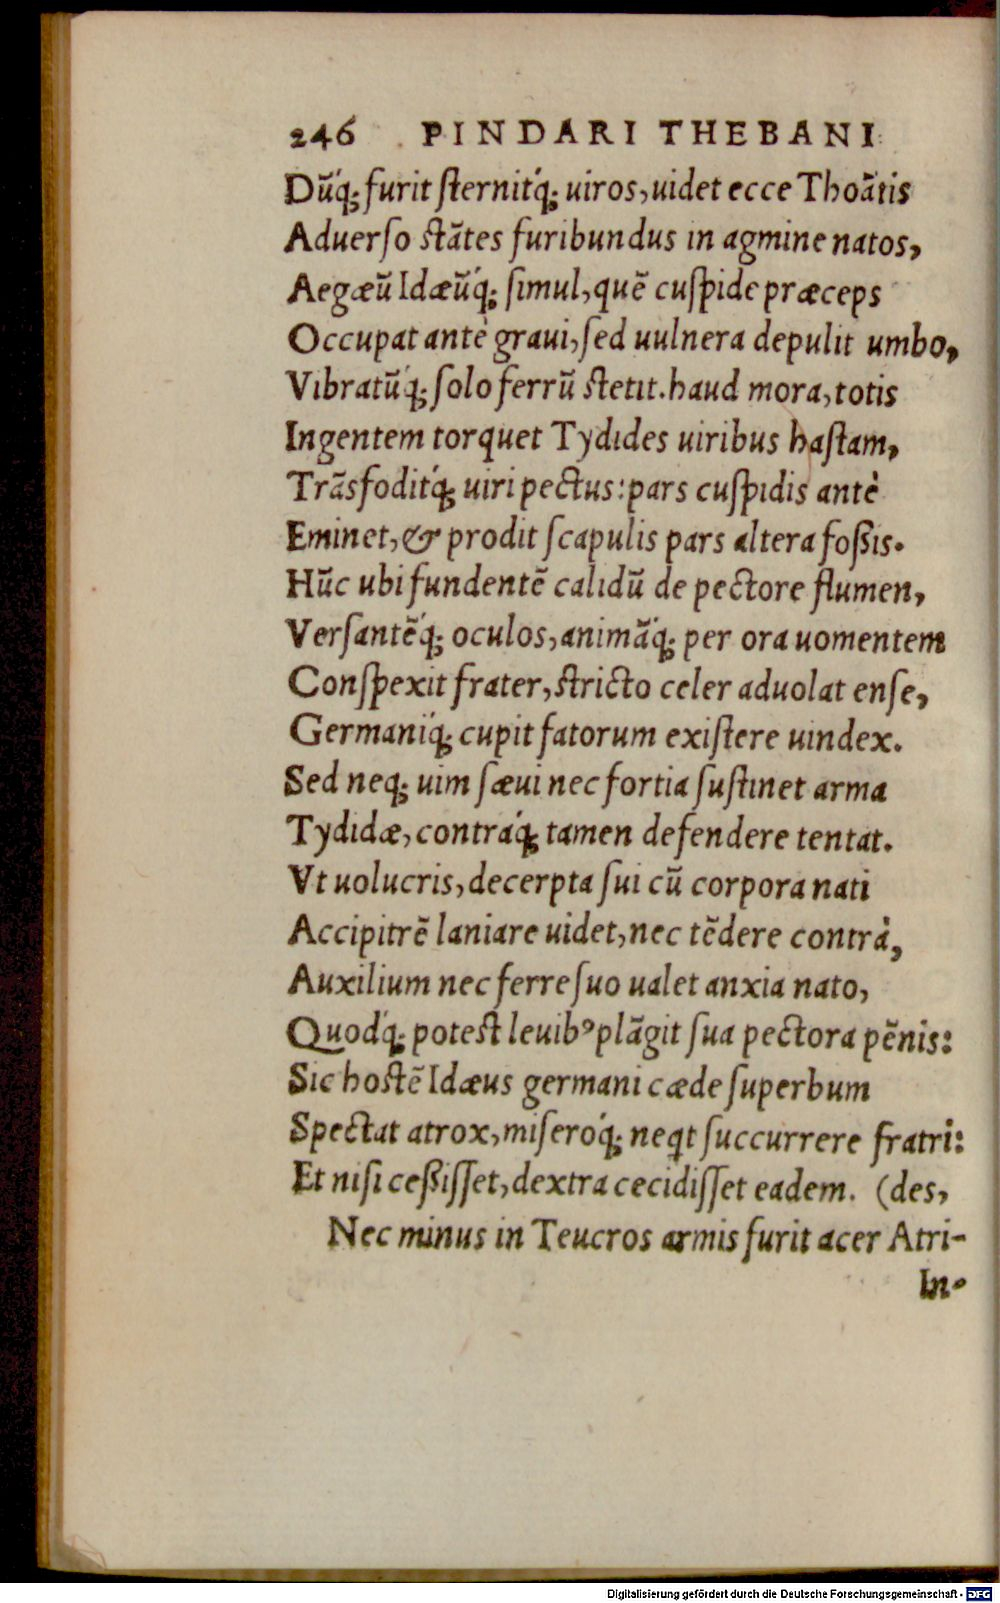 246 PINDARI THEBANI
Dũq́; furit ſternitq́; uiros, uidet ecce Thoãtis
Aduerſo ſtãtes furibundus in agmine natos,
Aegæũ Idæũq́; ſimul, quẽ cuſpide præceps
Occupat antè graui, ſed uulnera depulit umbo,
Vibratũq́; ſolo ferrũ ſtetit. haud mora, totis
Ingentem torquet Tydides uiribus haſtam,
Trãsfoditq́; uiri pectus: pars cuſpidis antè
Eminet, & prodit ſcapulis pars altera foßis.
Hũc ubi fundentẽ calidũ de pectore flumen,
Verſantẽq́; oculos, animãq́; per ora uomentem
Conſpexit frater, ſtricto celer aduolat enſe,
Germaniq́; cupit fatorum exiſtere uindex.
Sed neq; uim ſæui nec fortia ſuſtinet arma
Tydidæ, contraq́; tamen defendere tentat.
Vt uolucris, decerpta ſui cũ corpora nati
Accipitrẽ laniare uidet, nec tẽdere contrà,
Auxilium nec ferre ſuo ualet anxia nato,
Quodq́; poteſt leuibꝰ plãgit ſua pectora pẽnis:
Sic hoſtẽ Idæus germani cæde ſuperbum
Spectat atrox, miſeroq́; neq̃t ſuccurrere fratri:
Et niſi ceßiſſet, dextra cecidiſſet eadem. (des,
Nec minus in Teucros armis furit acer Atri-
In-
Digitalisierung gefördert durch die Deutsche Forschungsgemeinschaft - DFG